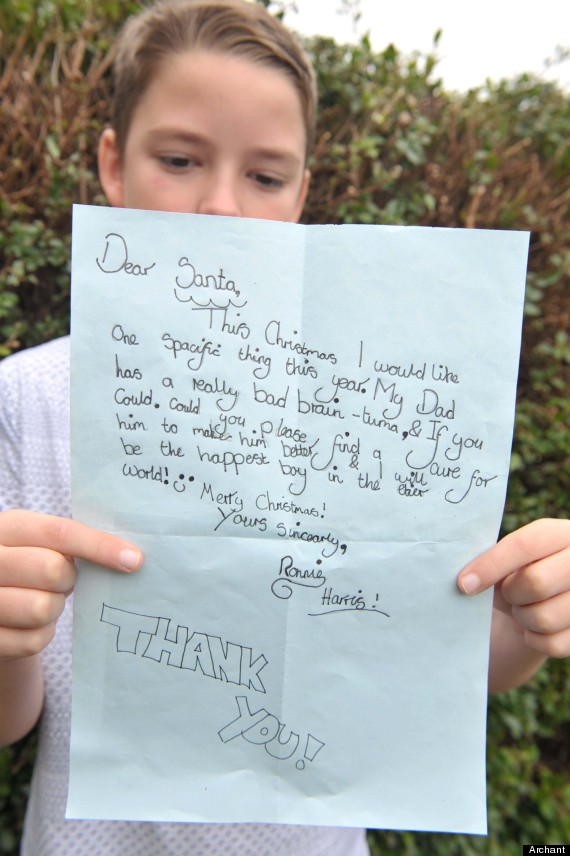 Dear Santa,
This Christmas I would like
One spacific thing this year. My Dad
has a really bad brain-tuma, & If you
Could. Could you please find a cure for
him to make him better, & I will
be the happest boy in the ever
world!
Merry Christmas!
Yours sincearly,
Ronnie
Harris!
THANK
YOU!
Archant